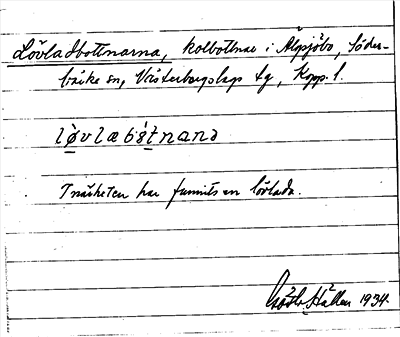 Lövladbottnarna, kolbottnar i Älgsjöbo, Söder-
bärke sn, Västerbergslags tg, Kopp. l.
lø̀vlæbótnanə
I närheten har funnits en lövlada.
Hållen 1934.